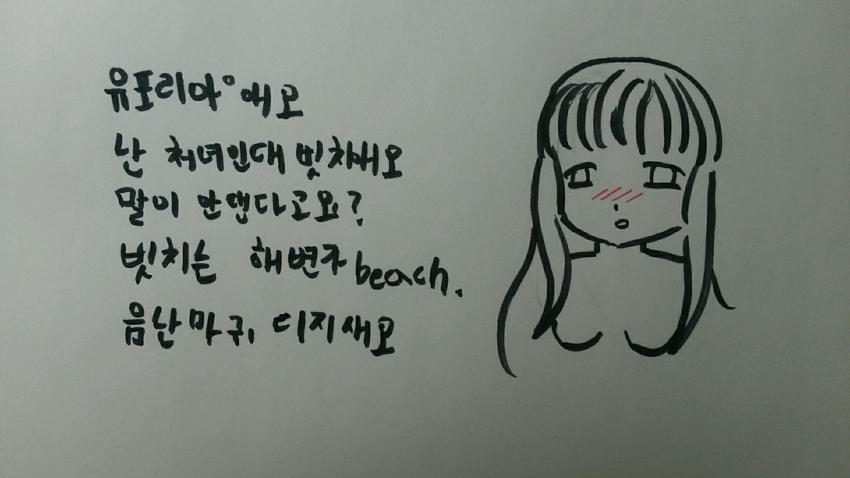 유포리아에오
난 처녀인대 빗치에오
말이 안댄다고요?
빗치는 해변가 beach.
음난마귀, 디지새요